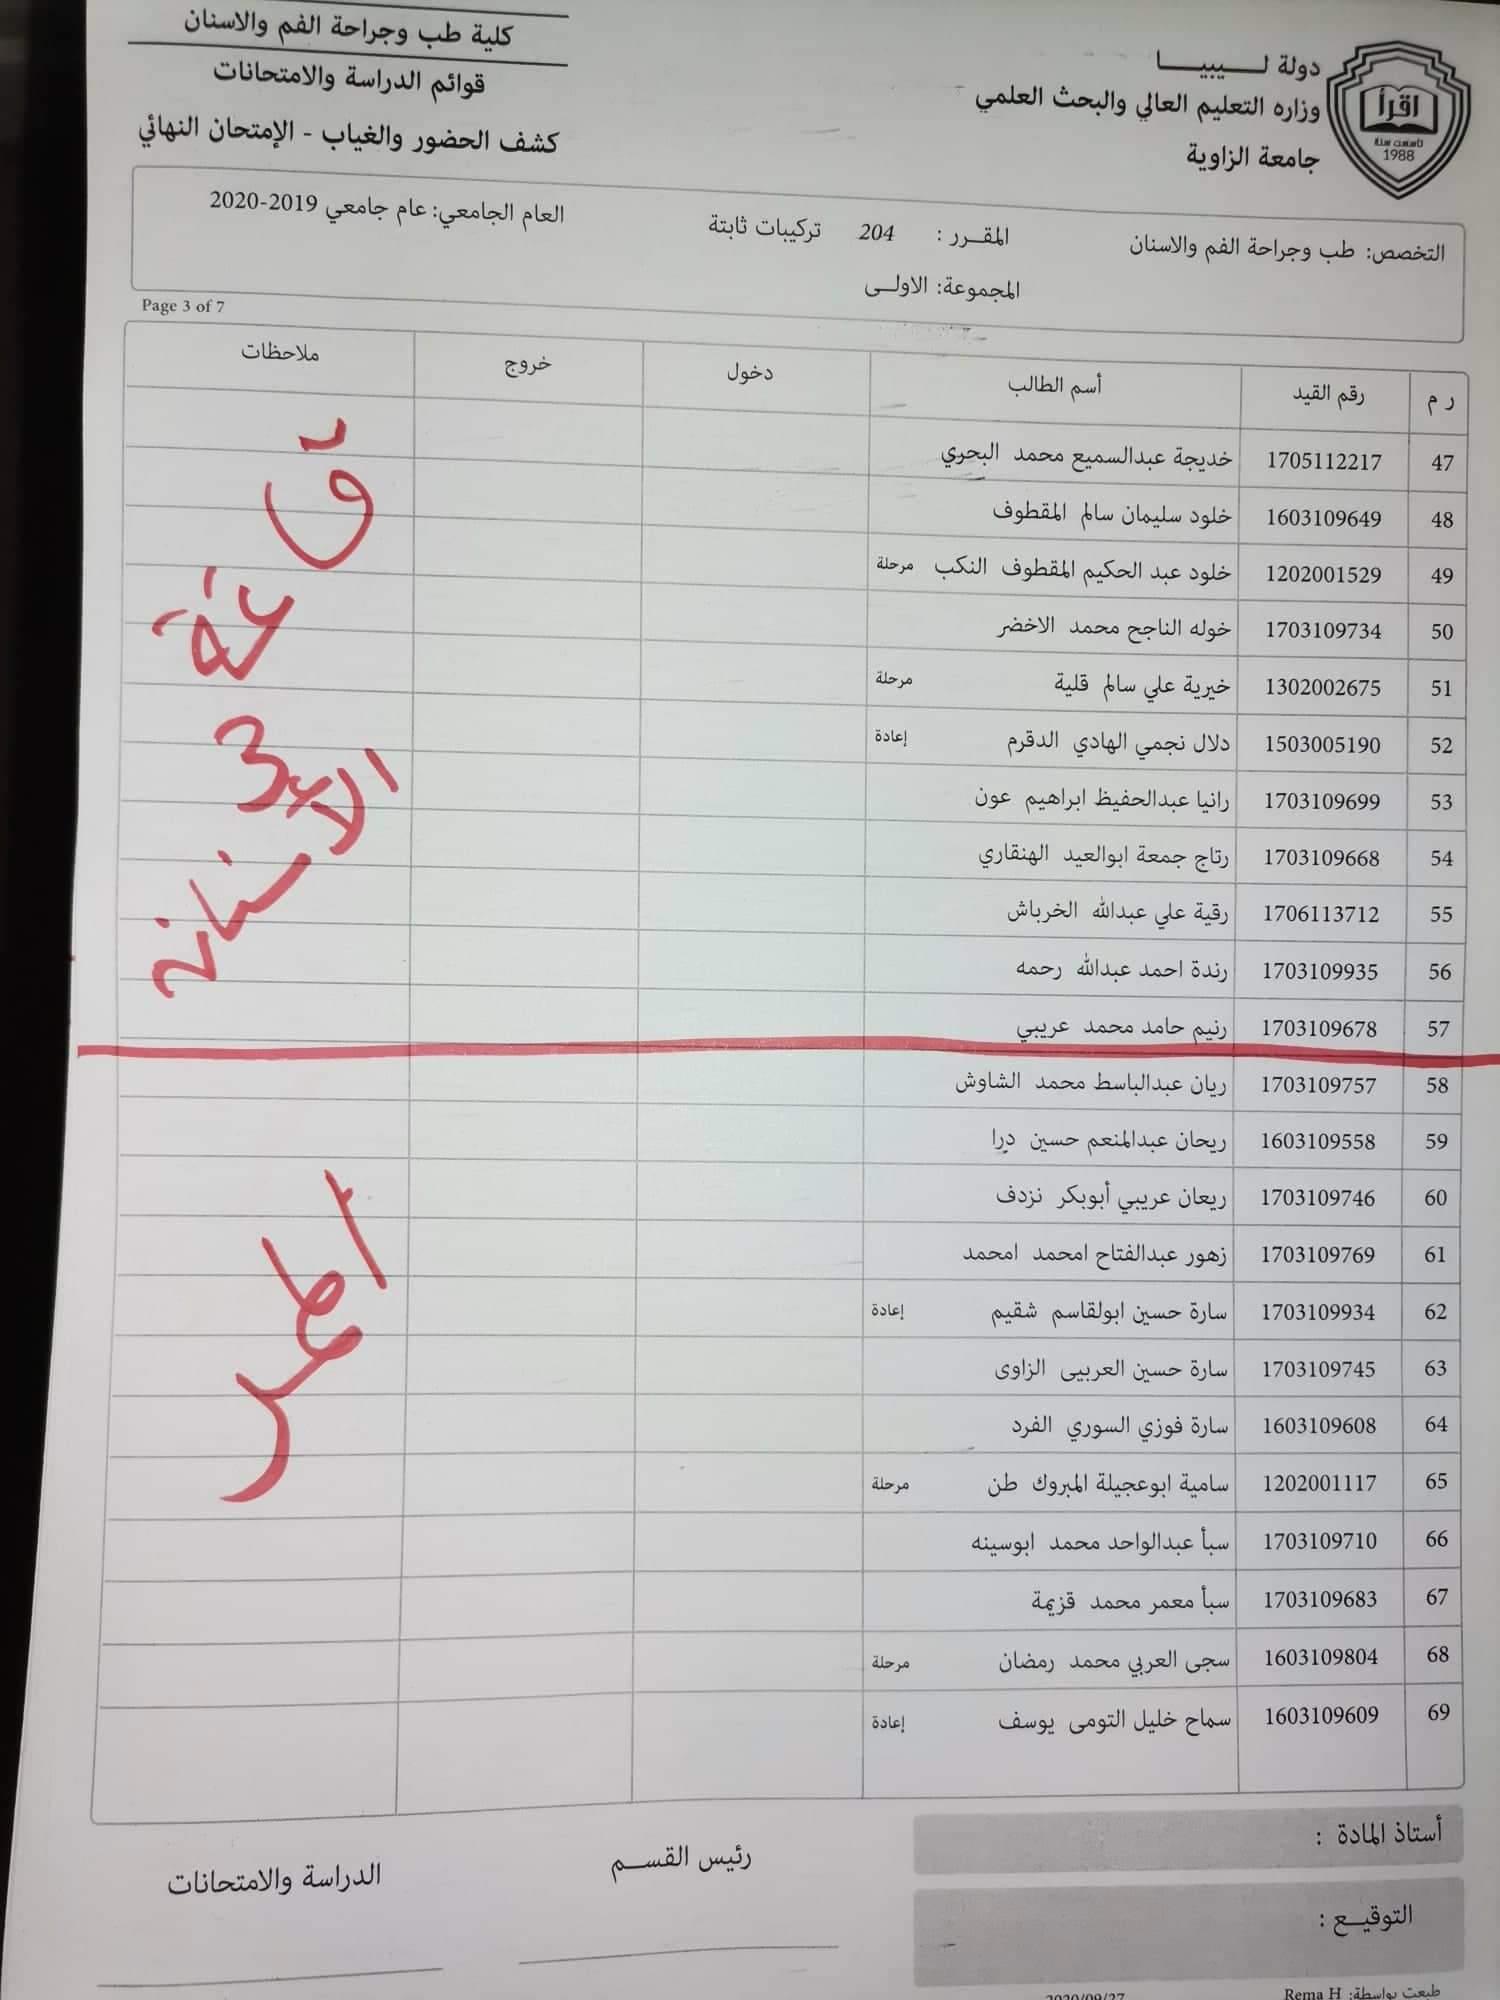 دولة لـــيبيـــا
وزاره التعليم العالي والبحث العلمي
جامعة الزاوية
اقرأ
تأسست سنة
1988
كلية طب وجراحة الفم والاسنان
قوائم الدراسة والامتحانات
كشف الحضور والغياب - الإمتحان النهائي
التخصص: طب وجراحة الفم والاسنان المقـــرر : 204 تركيبات ثابتة العام الجامعي: عام جامعي 2019-2020
المجموعة: الاولــى
Page 3 of 7
ر م رقم القيد أسم الطالب دخول خروج ملاحظات
47 1705112217 خديجة عبدالسميع محمد البحري
48 1603109649 خلود سليمان سالم المقطوف
49 1202001529 خلود عبد الحكيم المقطوف النكب مرحلة
50 1703109734 خوله الناجح محمد الاخضر
51 1302002675 خيرية علي سالم قلية مرحلة
52 1503005190 دلال نجمي الهادي الدقرم إعادة
53 1703109699 رانيا عبدالحفيظ ابراهيم عون
54 1703109668 رتاج جمعة ابوالعيد الهنقاري
55 1706113712 رقية علي عبدالله الخرباش
56 1703109935 رندة احمد عبدالله رحمه
57 1703109678 رنيم حامد محمد عريبي
58 1703109757 ريان عبدالباسط محمد الشاوش
59 1603109558 ريحان عبدالمنعم حسين درا
60 1703109746 ريعان عريبي أبوبكر نزدف
61 1703109769 زهور عبدالفتاح امحمد امحمد
62 1703109934 سارة حسين ابولقاسم شقيم إعادة
63 1703109745 سارة حسين العربيى الزاوى
64 1603109608 سارة فوزي السوري الفرد
65 1202001117 سامية ابوعجيلة المبروك طن مرحلة
66 1703109710 سبأ عبدالواحد محمد ابوسينه
67 1703109683 سبأ معمر محمد قزيمة
68 1603109804 سجى العربي محمد رمضان مرحلة
69 1603109609 سماح خليل التومى يوسف إعادة
ق عة 3
الاسنان
أستاذ المادة :
التوقيــع :
رئيس القســـم
الدراسة والامتحانات
طبعت بواسطة: Rema H 2020/09/27